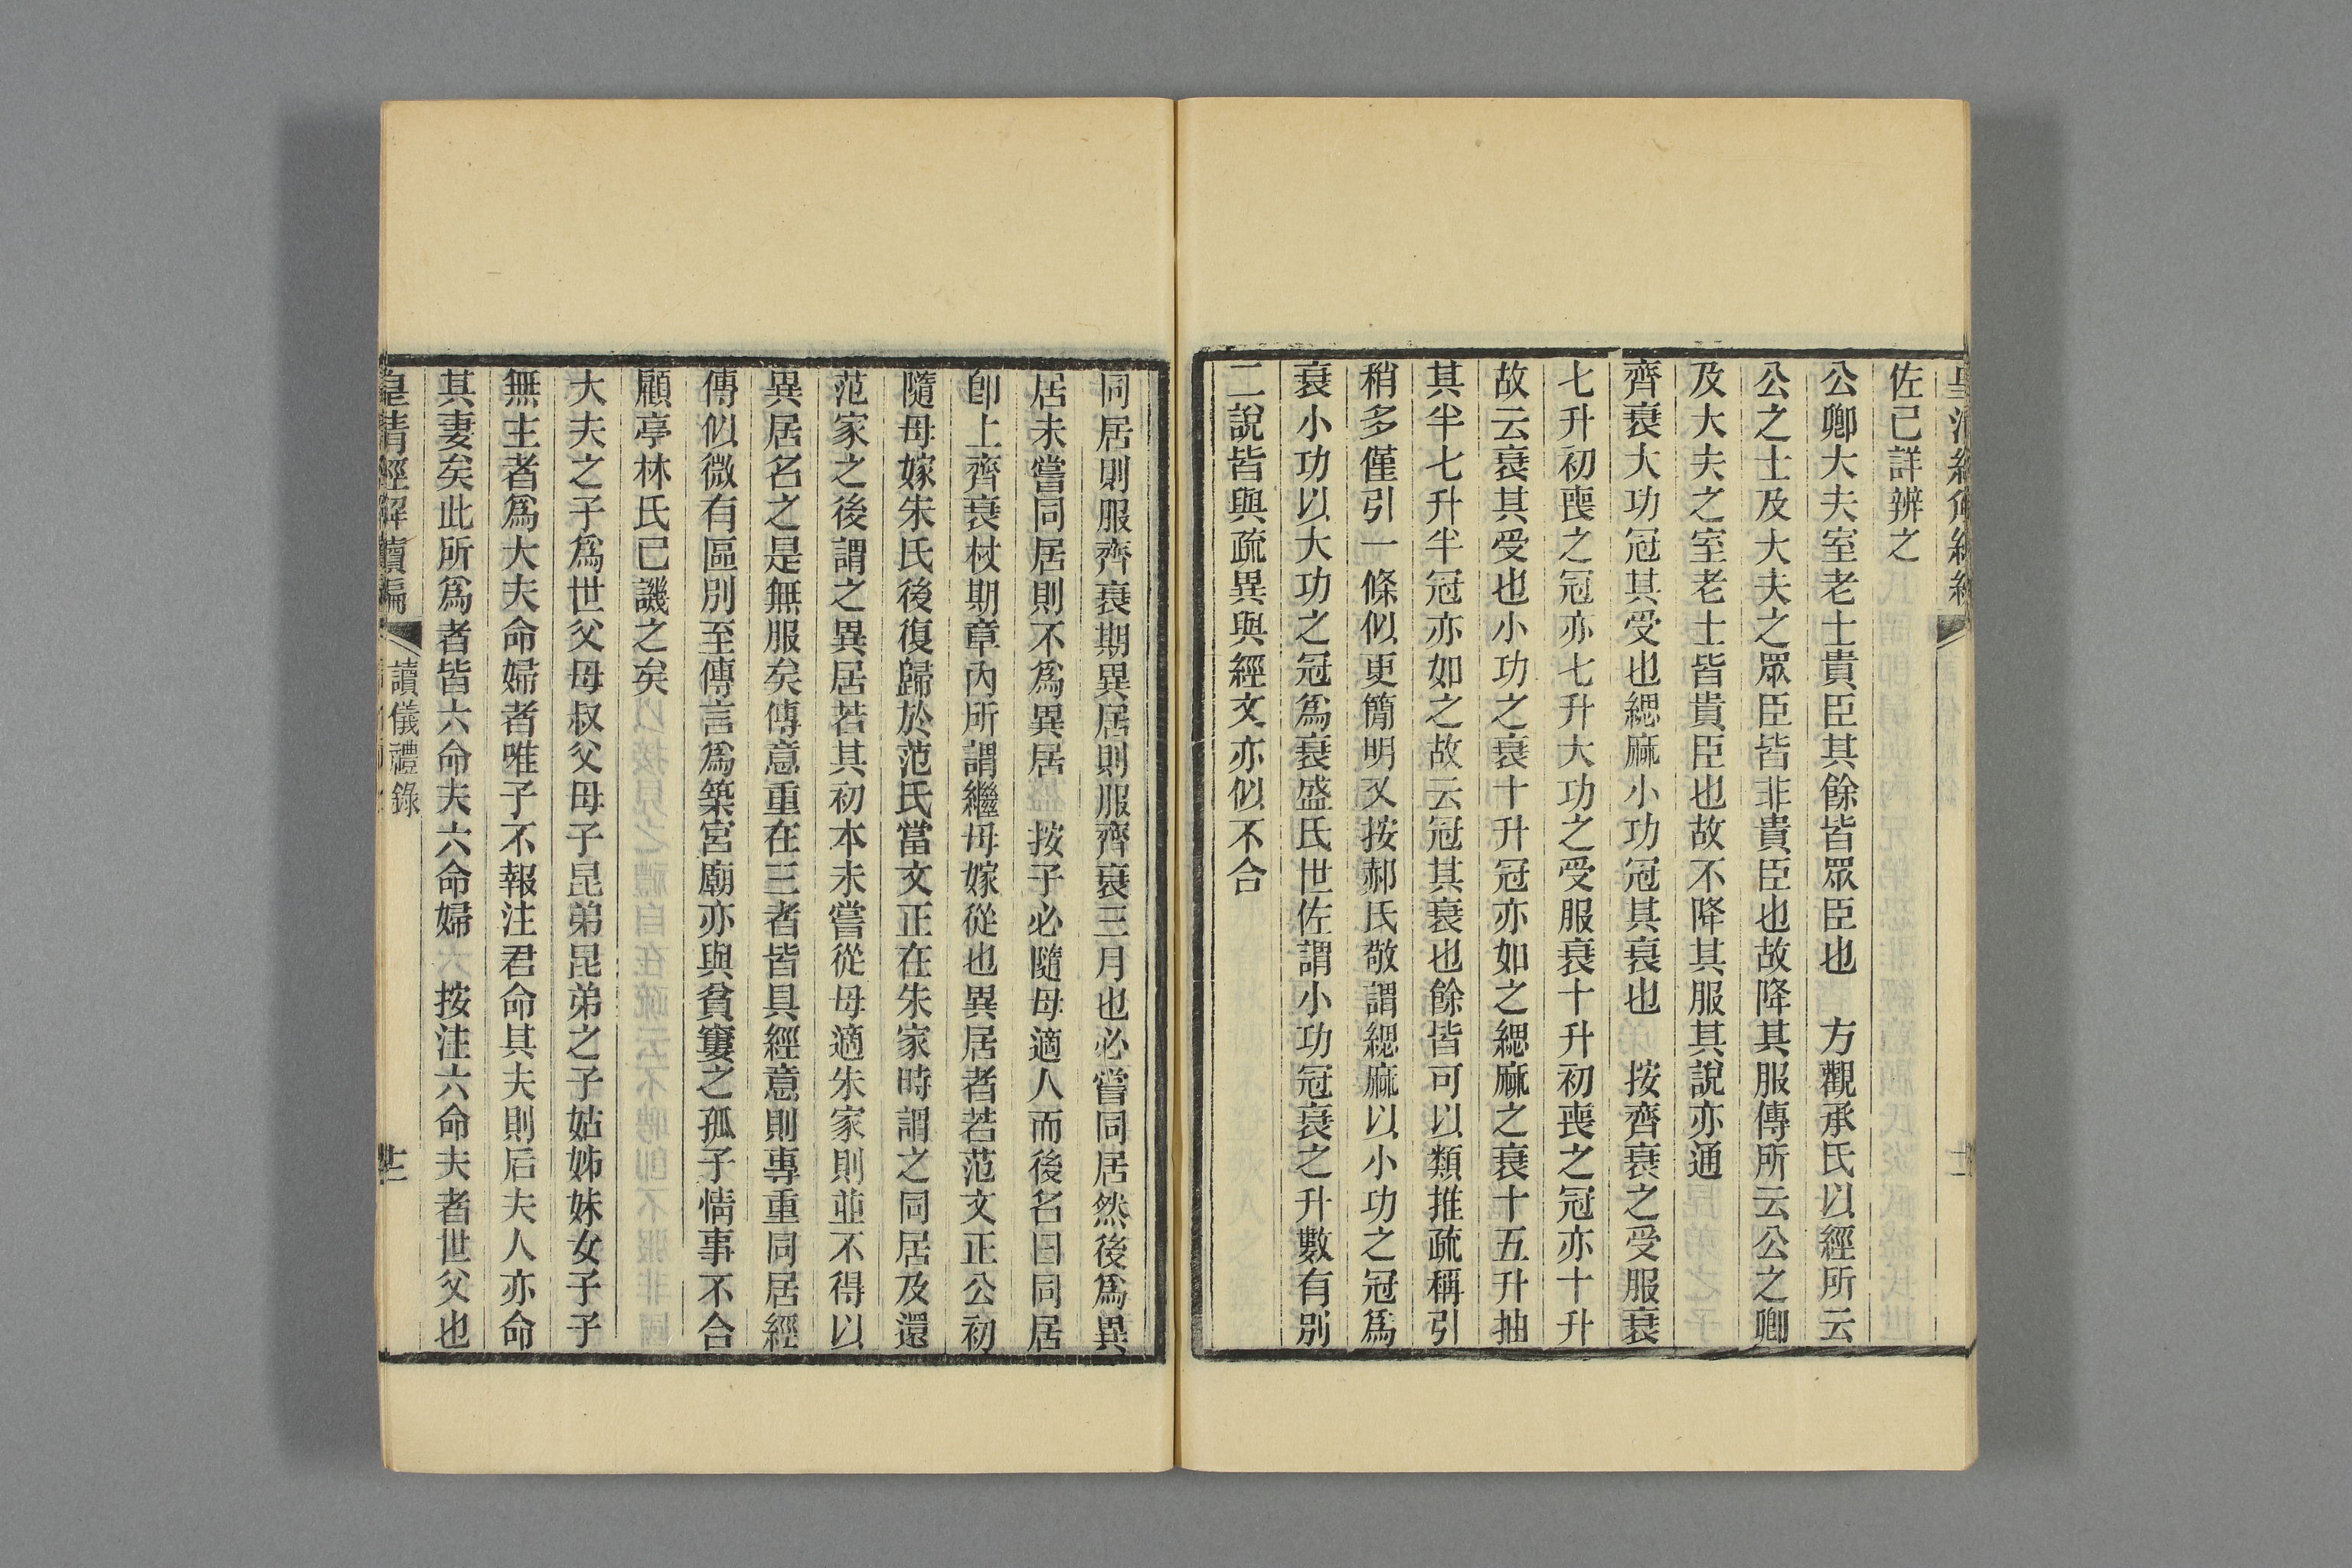 佐已詳辨之
公卿大夫室老士貴臣其餘皆眾臣也　方觀承氏以經所云
公之士及大夫之眾臣皆非貴臣也故降其服傳所云公之卿
及大夫之室老士皆貴臣也故不降其服其說亦通
齊衰大功冠其受也緦麻小功冠其衰也　按齊衰之受服衰
七升初喪之冠亦七升大功之受服衰十升初喪之冠亦十升
故云衰其受也小功之衰十升冠亦如之緦麻之衰十五升抽
其半七升半冠亦如之故云冠其衰也餘皆可以類推疏稱引
稍多僅引一條似更簡明又按郝氏敬謂緦麻以小功之冠為
衰小功以大功之冠為衰盛氏世佐謂小功冠衰之升數有別
二說皆與疏異與經文亦似不合
同居則服齊衰期異居則服齊衰三月也必嘗同居然後為異
居未嘗同居則不為異居　按子必隨母適人而後名曰同居
卽上齊衰杖期章內所謂繼母嫁從也異居者若范文正公初
隨母嫁朱氏後復歸於范氏當文正在朱家時謂之同居及還
范家之後謂之異居若其初本未嘗從母適朱家則並不得以
異居名之是無服矣傳意重在三者皆具經意則專重同居經
傳似微有區別至傳言為築宮廟亦與貧窶之孤子情事不合
顧亭林氏已譏之矣
大夫之子為世父母叔父母子昆弟昆弟之子姑姊妹女子子
無主者為大夫命婦者唯子不報注君命其夫則后夫人亦命
其妻矣此所為者皆六命夫六命婦　按注六命夫者世父也
皇清經解續編
讀儀禮錄